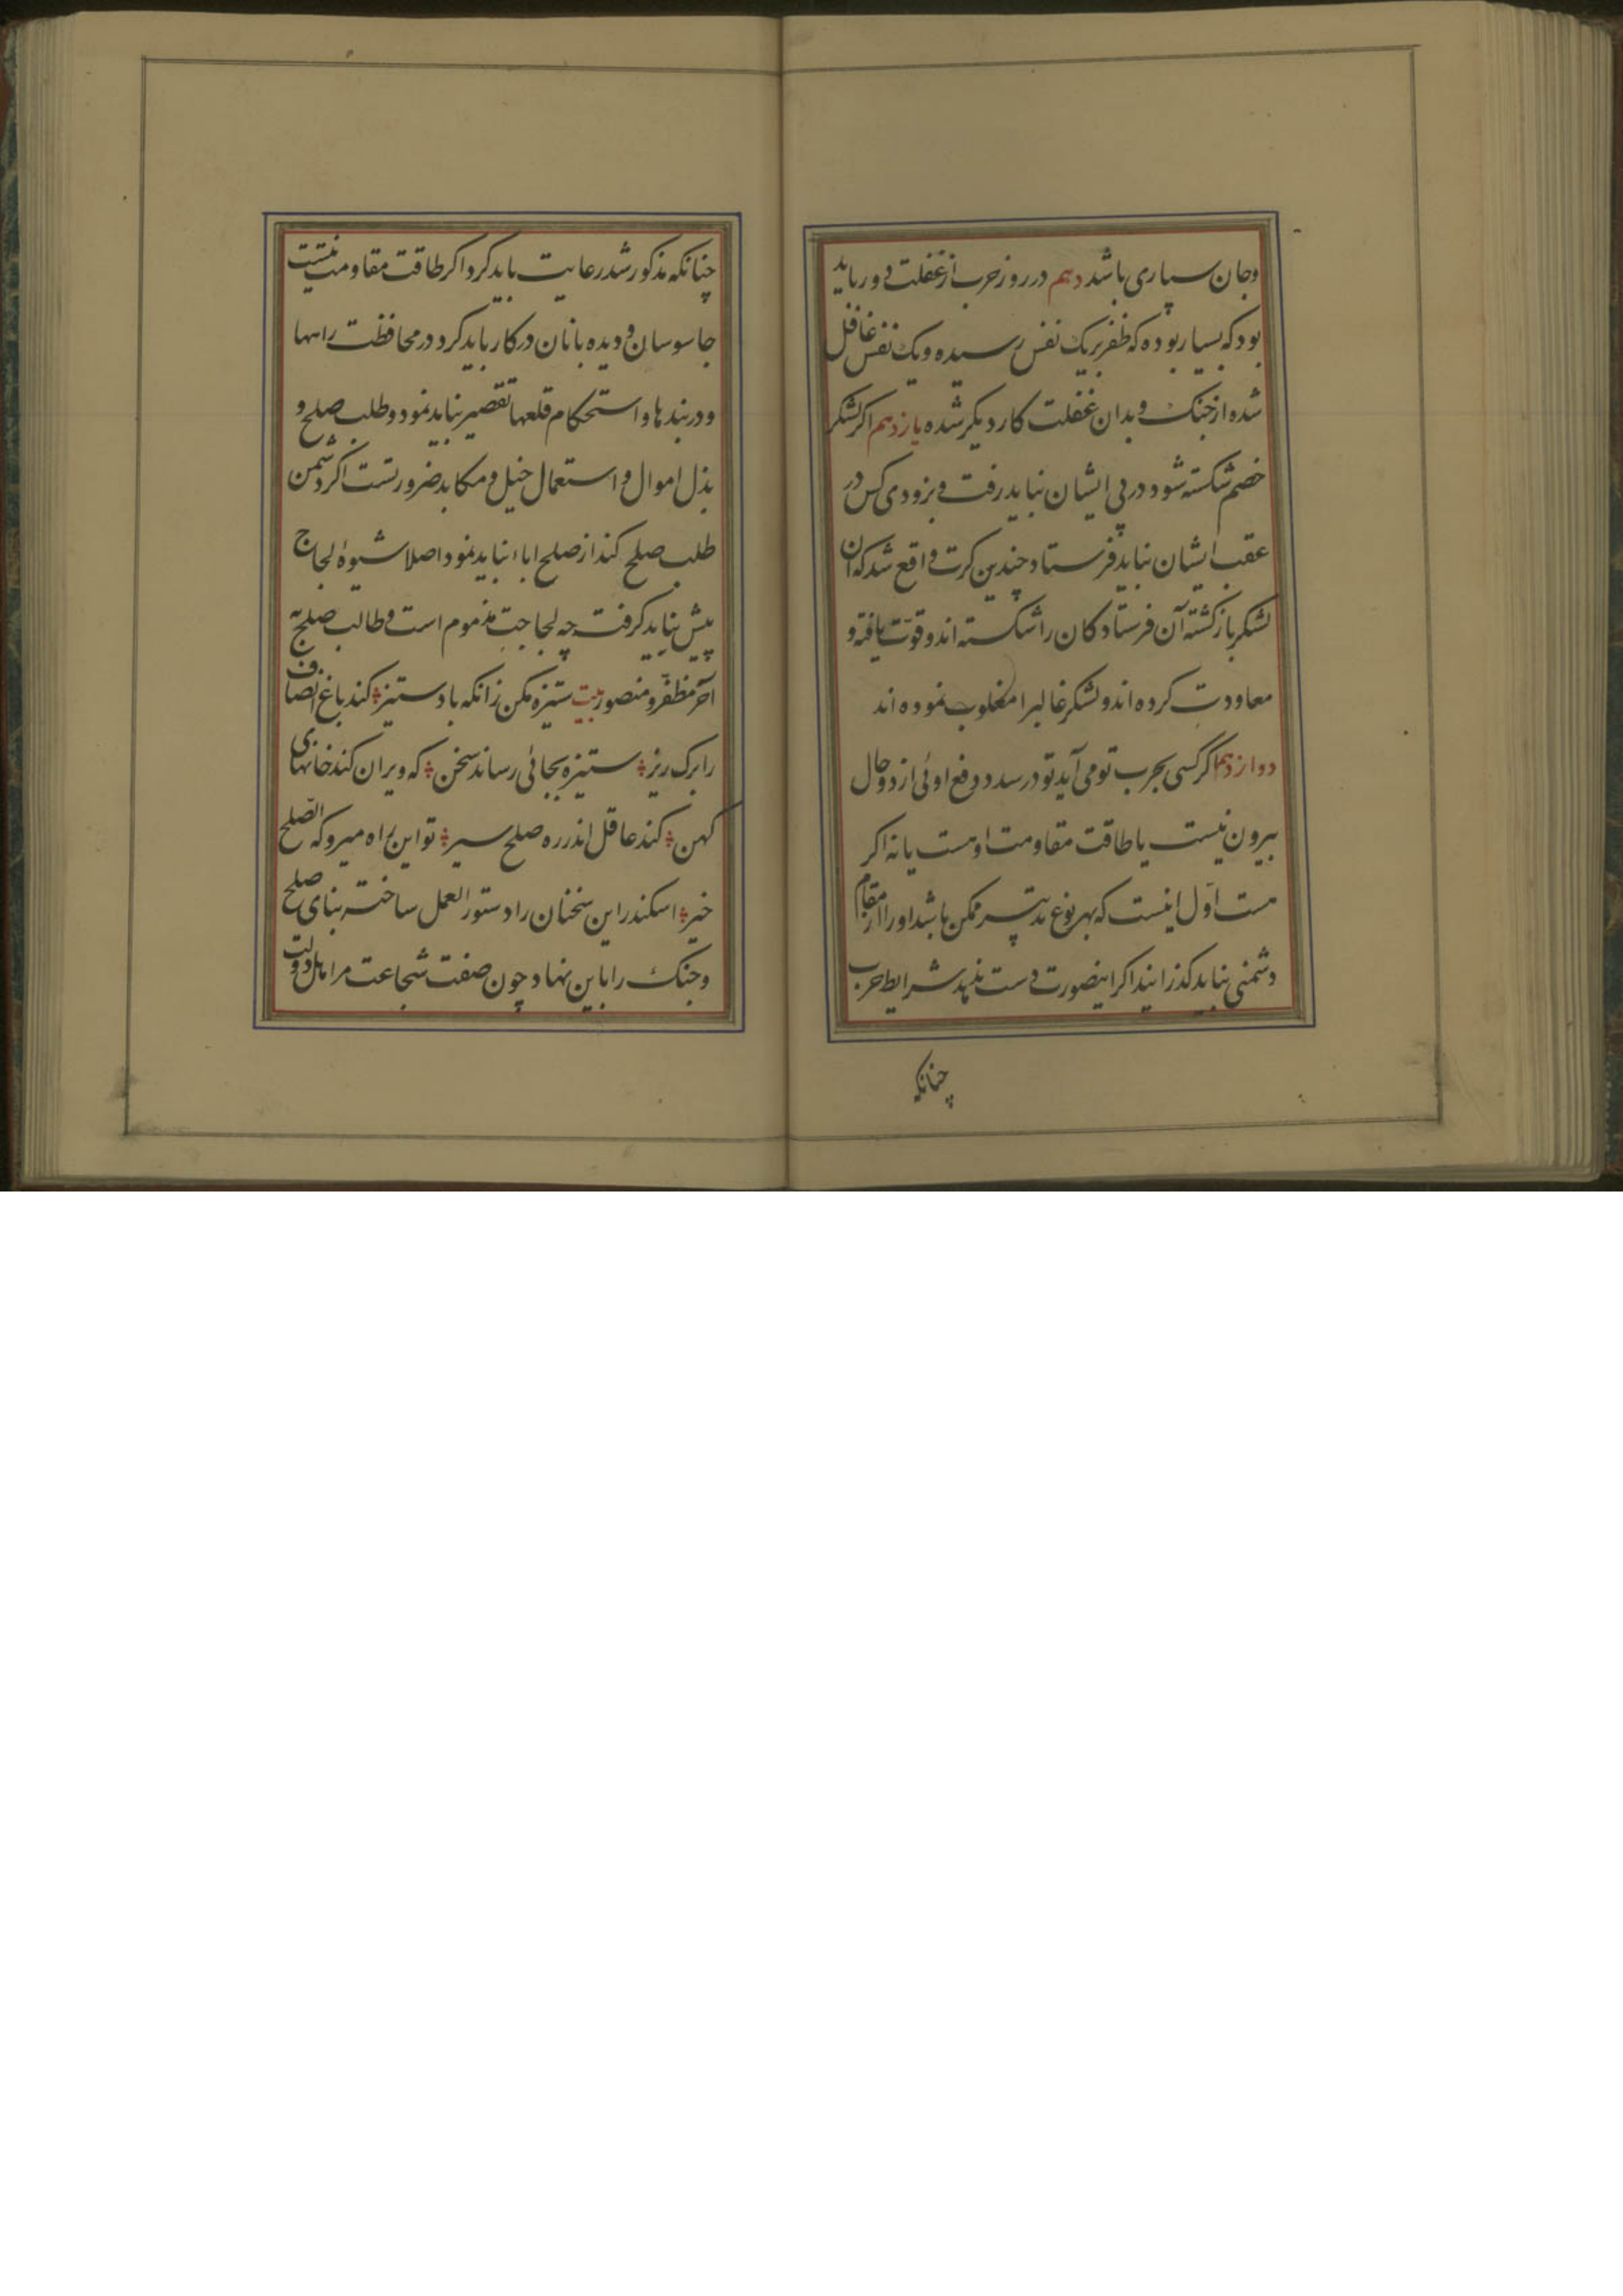 وجان سپاری باشد دهم در روز حرب از غفلت دور باید
بود که بسیار بوده که ظفر بر یک نفس رسیده و یک نفس غافل
شده از جنک و بدان غفلت کار دیکر شده یازدهم اکر لشکر
خصم شکسته شود در پی ایشان نباید رفت و بزودی کس در
عقب ایشان نباید فرستاد چندین کرت واقع شد که آن
لشکر بازکشته آن فرستادکان را شکسته اند و قوت یافته و
معاودت کرده اند و لشکر غالبرا مغلوب نموده اند
دوازدهم اکر کسی بحرب تو می آید تو در صدد دفع اوئی از دو حال
بیرون نیست یا طاقت مقاومت او هست یا نه اکر
هست اوّل اینست که بهر نوع تدبیر ممکن باشد او را از مقام
دشمنی نباید کذرانید اکر اینصورت دست ندهد شرایط حرب
چنانکه
چنانکه مذکور شد رعایت باید کرد و اکر طاقت مقاومت نیست
جاسوسان و دیده بانان در کار باید کرد و در محافظت راهها
و دربندها و استحکام قلعها تقصیر نباید نمود و طلب صلح و
بذل اموال و استعمال خیل و مکاید ضرورتست اکر دشمن
طلب صلح کند از صلح اباا نباید نمود و اصلا شیوهٔ لجاج
پیش نباید کرفت چه لجاجت مذموم است و طالب صلح
آخر مظفّر و منصور بیت ستیزه مکن زانکه باد ستیز کند باغ انصاف
را برک ریز ستیزه بجائی رساند سخن که ویران کند خانهای
کهن کند عاقل اندر ره صلح سیر تو این راه میرو که الصّلح
خیر اسکندر این سخنان را دستور العمل ساخته بنای صلح
و جنک را باین نهاد و چون صفت شجاعت مر اهل دولت